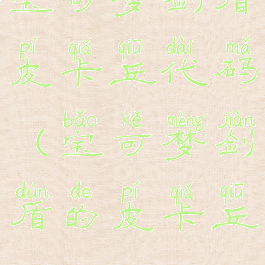 宝的梦剑盾
pí qiǎ qiū dài mǎ
皮卡丘代码
bǎo kě mèng jiàn
（宝可梦剑
dùn de pí qiǎ qiū
盾的皮卡丘